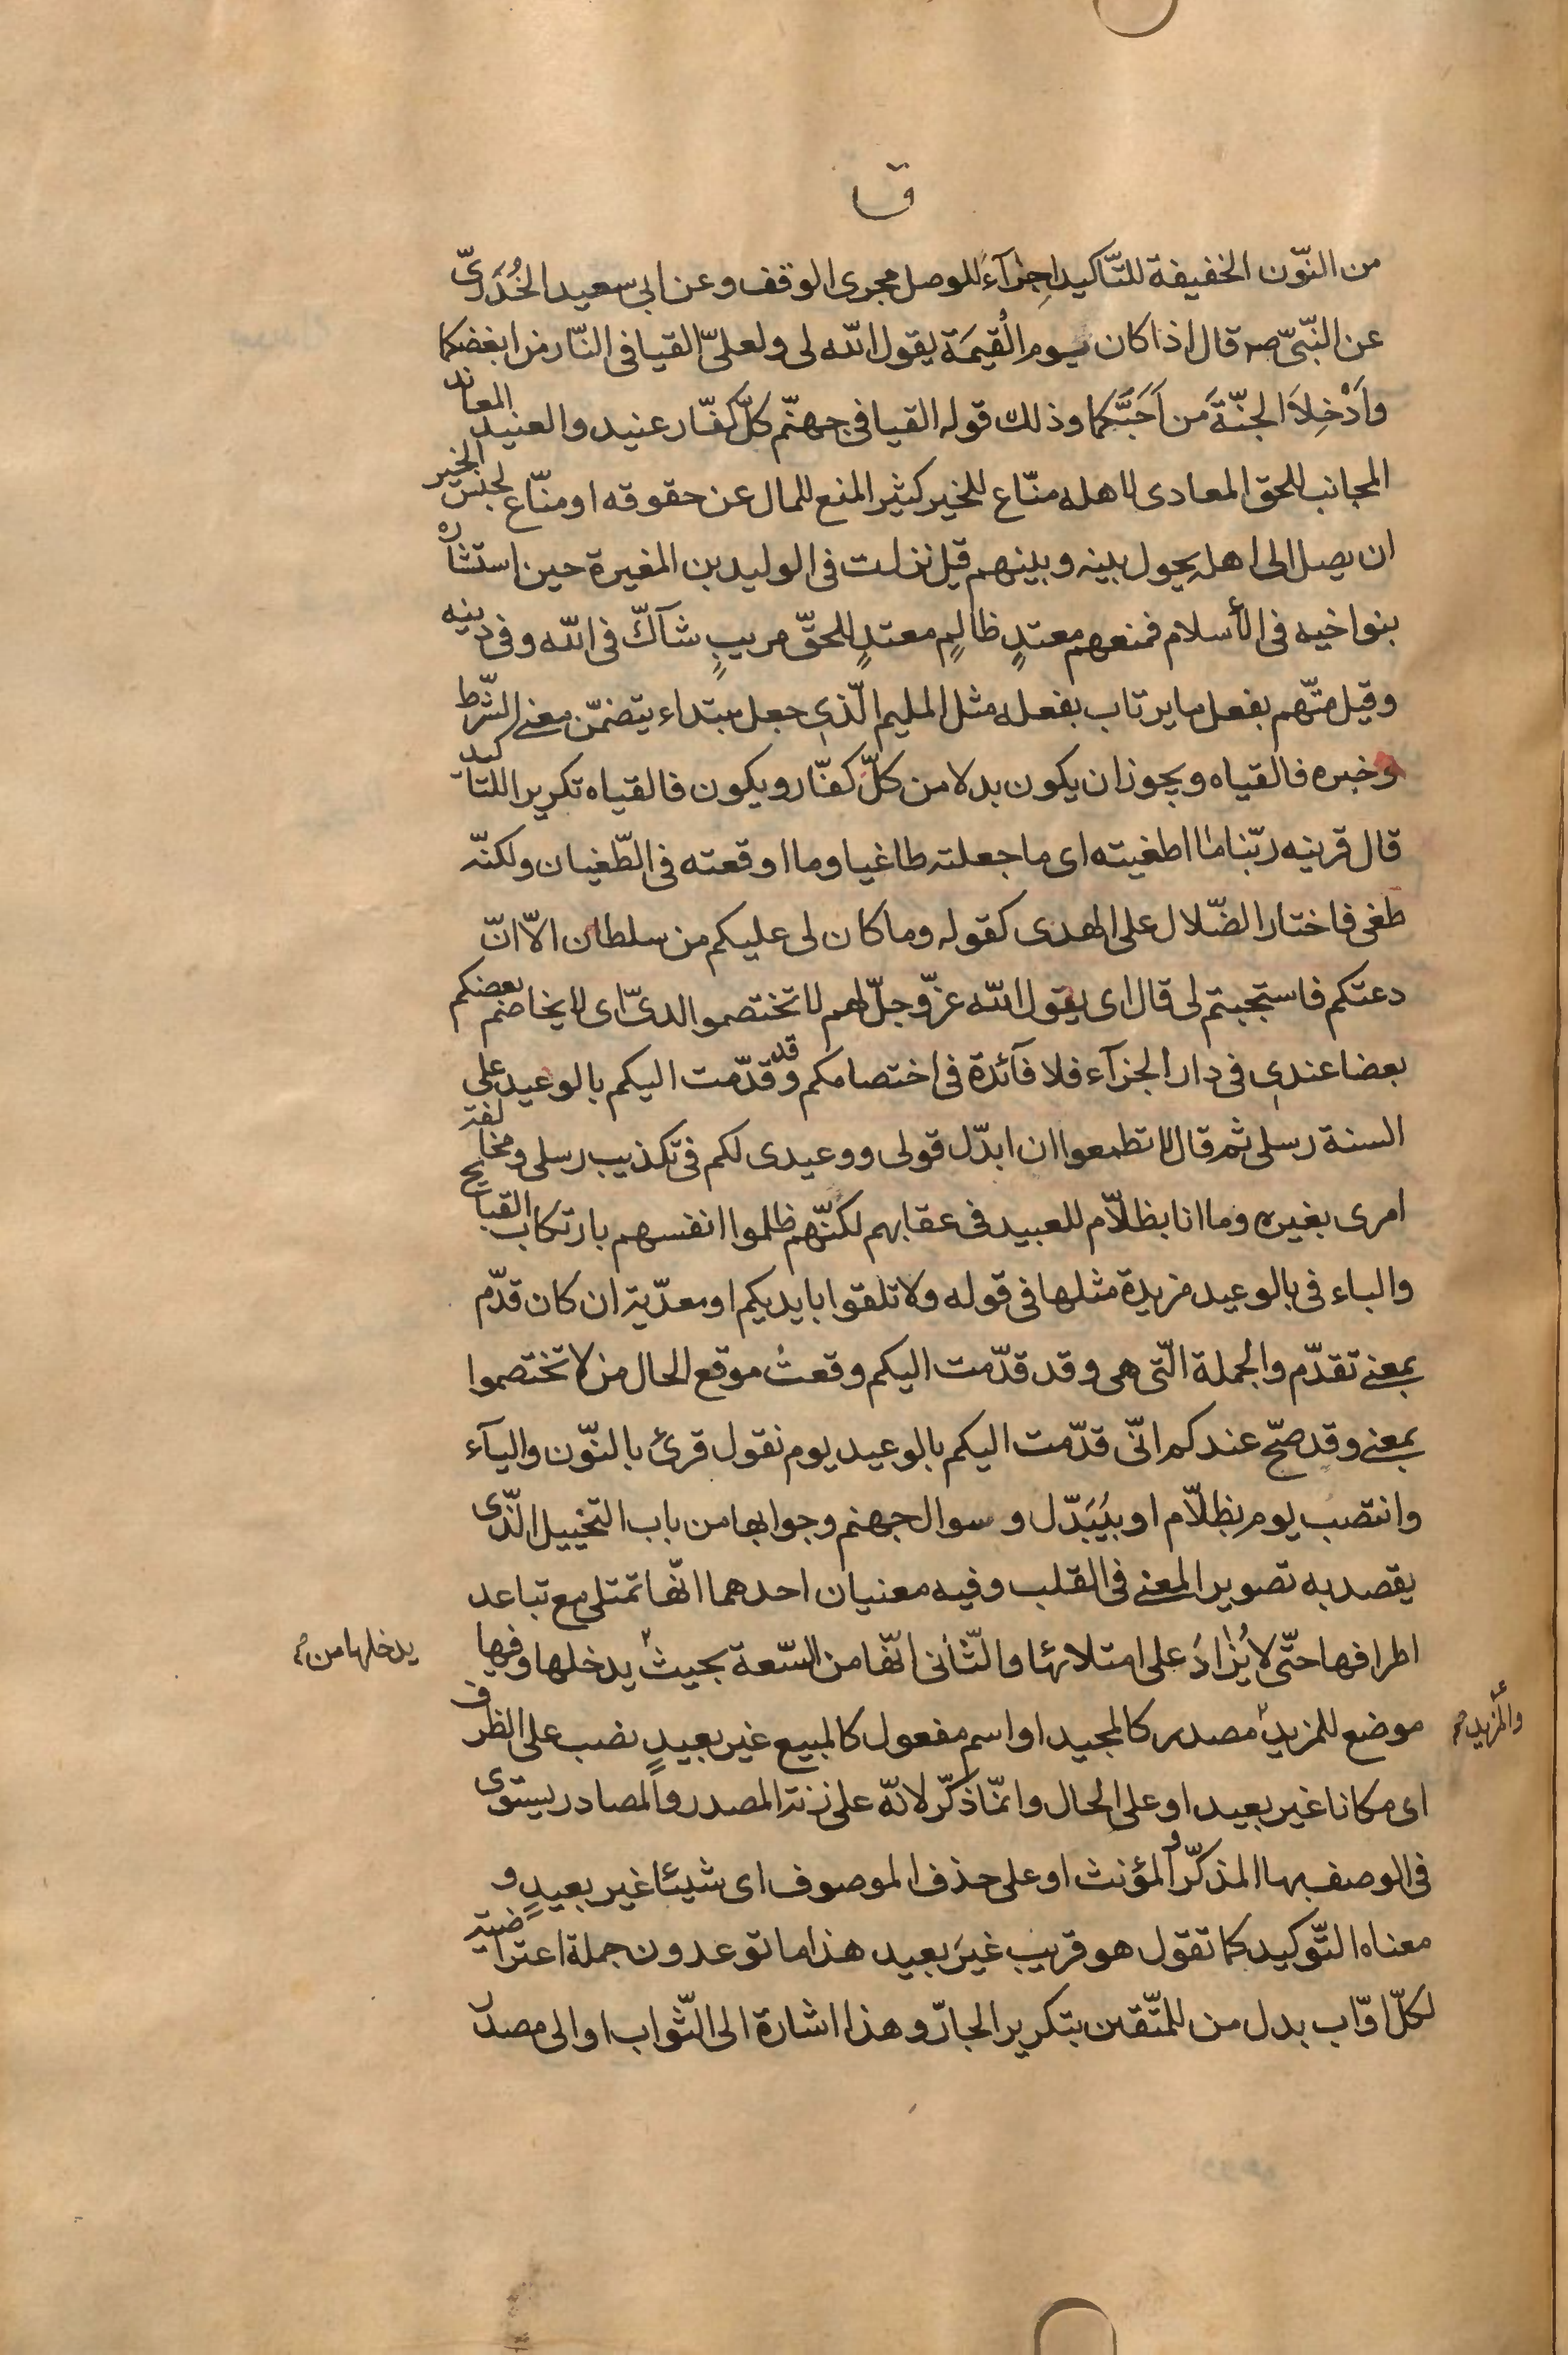 ق
من النّون الخفيفة للتّاكيد اجِرٰآءً للوصل مجرى الوقف وعن ابى سعيد الخُدَرىّ
عن النّبىّ صه قال اذا كان يوم الْقيمَة يقول الله لى ولعلىّ القيا فى النّار من ابغضكما
وَاَدْخِلاَ الجنّةَ مَن اَحَبَّكما وذلك قوله القيا فى جهنّم كلّ كفّار عنيد والعنيد المعاند
المجانب للحق المعادى لاهله منّاع للخير كثير المنع للمال عن حقوقه او منّاع لجنس الخير
ان يصل الى اهله يحول بينه وبينهم قيل نزلت فى الوليد بن المغيرة حين استشاره
بنو اخيه فى الأسلام فمنعهم معتدٍ ظالمٍ معتدٍ للحقّ مريبٍ شآكّ فى الله وفى دينه
وقيل متّهم بفعل ما يرتاب بفعله مثل المليم الّذى جعل مبتداء يتضمّن معنى الشّرط
وخبره فالقياه ويجوز ان يكون بدلا من كلّ كفّار ويكون فالقياه تكريرا للتاكيد
قال قرينه ربّنا ما اطغيته اى ما جعلته طاغيا وما اوقعته فى الطّغيان ولكنّه
طغى فاختار الضّلال على الهدى كقوله وما كان لى عليكم من سلطان الاّ ان
دعتكم فاستجبتم لى قال اى يقول الله عزّ وجلّ لهم لا تختصموا لدىّ اى لا يخاصم بعضكم
بعضا عندى فى دار الجزآء فلا فآئدة فى اختصامكم وقد قدّمت اليكم بالوعيد على
السنة رسلى ثم قال لا تطمعوا ان ابدّل قولى ووعيدى لكم فى تكذيب رسلى ومخالفة
امرى بغيره وما انا بظلاّم للعبيد فى عقابهم لكنّهم ظلموا انفسهم بارتكاب القبايح
والباء فى بالوعيد مزيدة مثلها فى قوله ولا تلقوا بايديكم او معدّية ان كان قدّم
بمعنى تقدّم والجملة الّتى هى وقد قدّمت اليكم وقعتْ موقع الحال من لا تختصموا
بمعنى وقد صحّ عندكم انّى قدّمت اليكم بالوعيد يوم نقول قرئ بالنّون واليآء
وانتصب يوم بظلاّم او بيُبَدّل وسوال جهنم وجوابها من باب التخييل الّذى
يقصد به تصوير المعنى فى القلب وفيه معنيان احدهما انّها تمتلى مع تباعد
اطرافها حتّى لا يُزٰادُ على امتلائها والثّانى انّها من السّعة بحيث يدخلها وفيها
يدخلها من
موضع للمزيد مصدر كالمجيد او اسم مفعول كالمبيع غير بعيدٍ نصب على الظرف
والمزيد
اى مكانا غير بعيد او على الحال وانّما ذكّر لانّه على زنة المصدر والمصادر يستوى
فى الوصف بها المذكّر والمؤنث او على حذف الموصوف اى شيئا غير بعيدٍ و
معناه التّوكيد كما تقول هو قريب غيرَ بعيد هذا ما توعدون جملة اعتراضية
لكلّ اوّاب بدل من للمتّقين بتكرير الجارّ وهذا اشارة الى الثّواب او الى مصدر